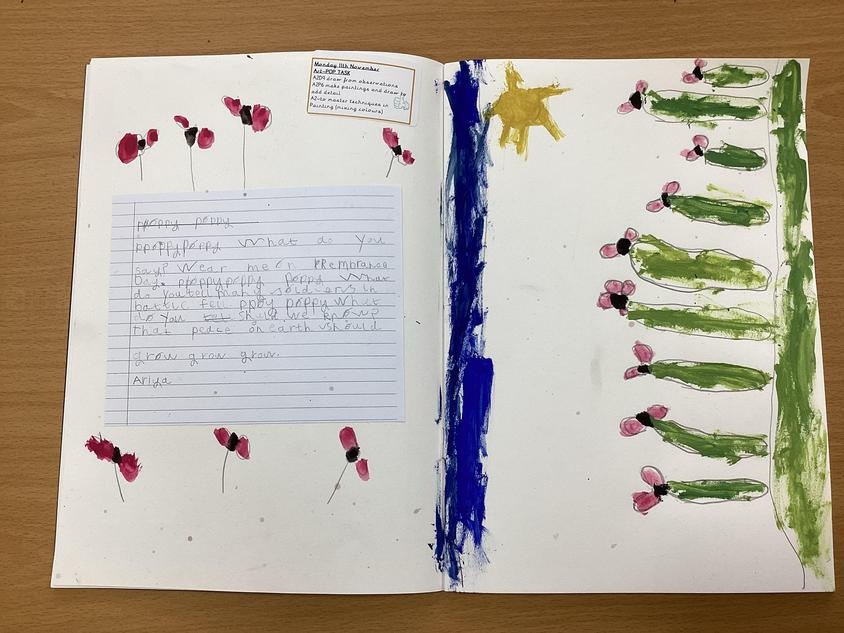 Monday 11th November
Art-POP TASK
A2D9 draw from observations
A2P6 make paintings and draw to
add detail
A2-to master techniques in
Painting (mixing colours)
poppy poppy
ppoppypoppy What do you
say? Wear me on Rembrance
Day. ppoppypoppy poppy What
do you tell many soldiers in
battle fell ppoy poppy What
do you shuld we know?
that peace on earth should
grow grow grow.
Ariya